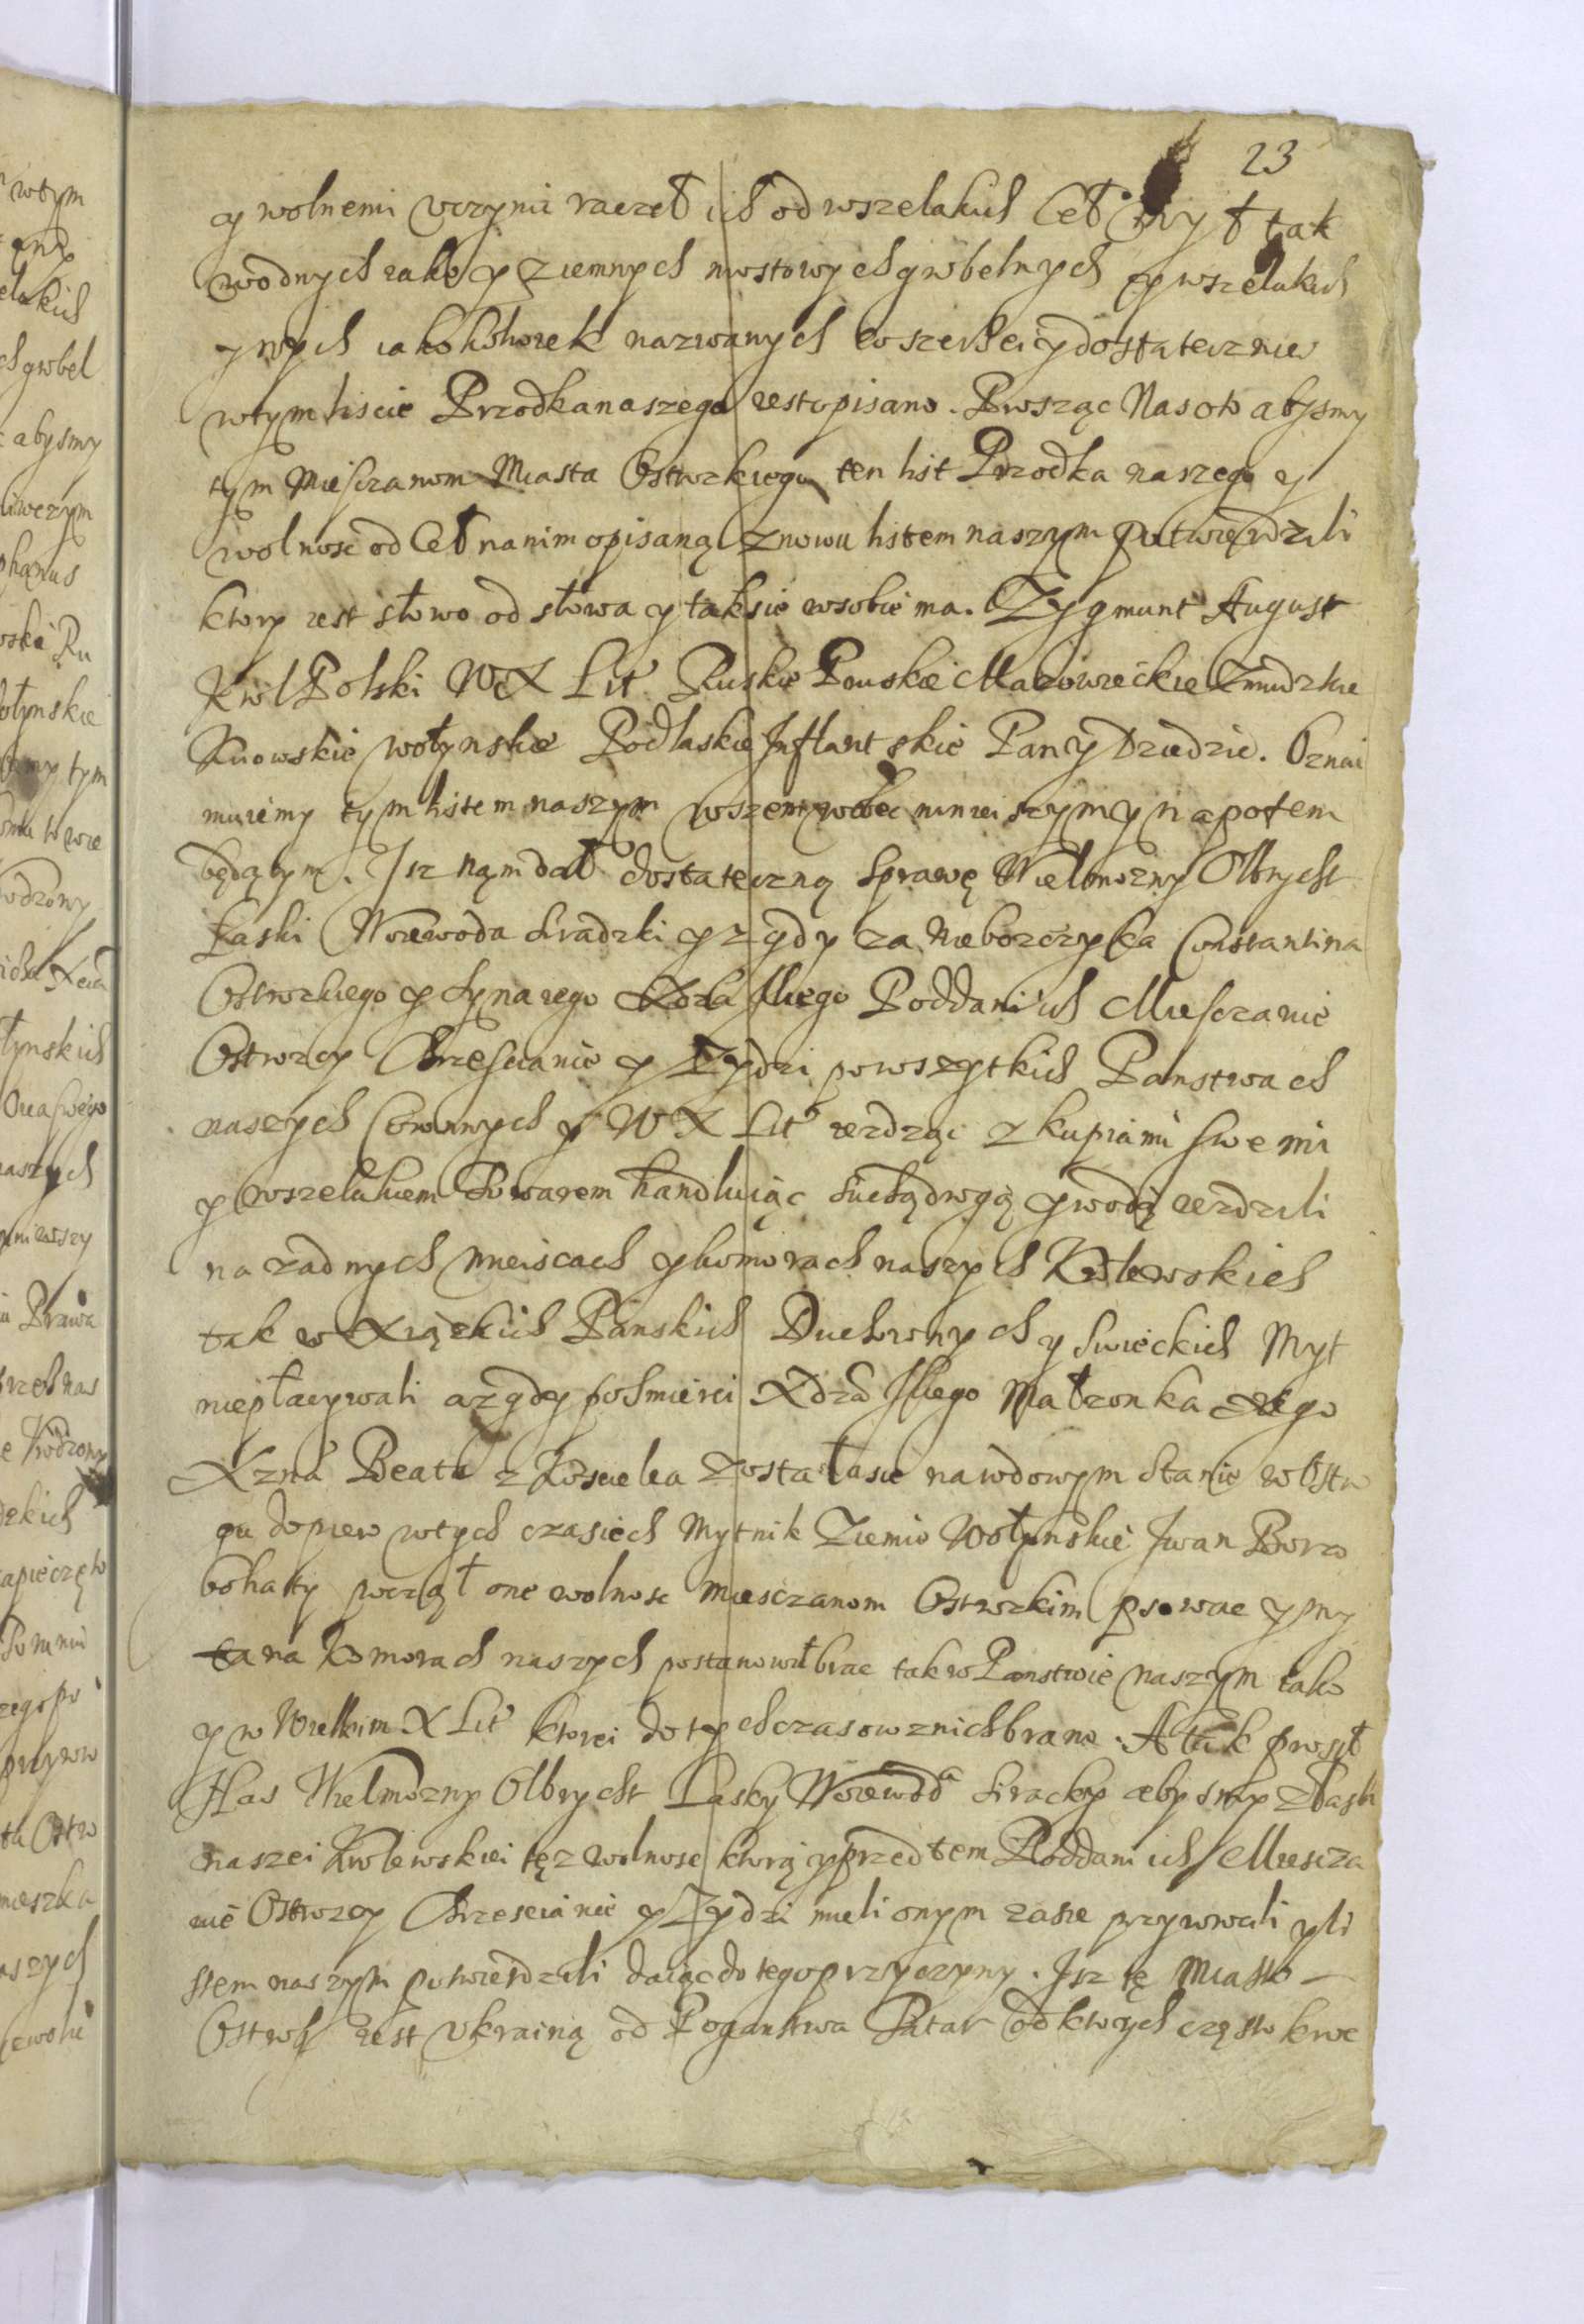 23
y wolnemi vczynic raczeł ich od wszelakich Ceł y Myt tak
wodnych iako y ziemnych mostowych grobelnych y wszelakich
ynych iakokolwiek nazwanych co szerzei y dostatecznie
wtym liscie Przodka naszego iest opisano. Prosząc Nas oto abysmy
tym Miesczanom Miasta Ostrozkiego ten list Przodka naszego y
wolnosc od Ceł na nim opisaną znowu listem naszym potwierdzili
ktory iest słowo od słowa y tak sie wsobie ma. Zygmunt August
Krol Polski W X Lit Ruskie Pruskie Mazowieckie Zmudzkie
Kiiowskie wołynskie Podlaskie Inflantskie Pan y Dziedzic. Oznai
muiemy tym listem naszym wszem wobec ninieiszym y napotem
będącym. Isz nam dał dostateczną sprawę Wielmozny Olbrycht
Łaski Woiewoda Siradzki ysz gdy za Nieboszczyka Constantina
Ostrozkiego y Syna iego Xdza Iliego Poddani ich Miesczanie
Ostrozcy Chrzescianie y Zydzi po wszytkich Panstwach
naszych Coronnych y W X Lit iezdząc z kupiami swemi
y wszelakiem Towarem handluiąc suchą drogą y wodą iezdzili
na zadnych mieiscach y komorach naszych Krolewskich
tak w Xiązkich Panskich Duchownych y Swieckich Myt
niepłacywali az gdy po smierci Xdza Iliego Małzonka iego
Xzna Beata z Koscielca zostałasie na wdowym stanie w Ostro
gu dopiero wtych czasiech Mytnik Ziemie Wołynskie Iwan Borzo
bohaty począł one wolnosc Miesczanom Ostrozkim psowac y my
ta na Komorach naszych postanowił brac tak w Panstwie naszym iako
y w Wielkim X Lit ktorei dotychczasow znich brano. A tak prosył
Nas Wielmozny Olbrycht Lasky Woiewoda Siracky abysmy z łaski
naszei Krolewskiei tęz wolnosc ktorą y przedtem Poddani ich Miescza
nie Ostrozcy Chrzescianie y Zydzi mieli onym zasie przywroli y li
stem naszym potwierdzili daiąc do tego przyczyny. Isz tę Miasto
Ostrog iest Vkrainą od Poganstwa Tatar od ktorych często kroc